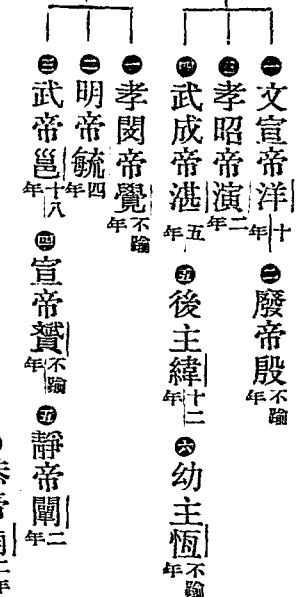 ㊀文宣帝洋十年
㊁廢帝殷不踰年
㊂孝昭帝演二年
㊃武成帝湛五年
㊄後主緯十二年
㊅幼主恆不踰年
㊀孝閔帝覺不踰年
㊁明帝毓四年
㊂武帝邕十八年
㊃宣帝贇不踰年
㊄靜帝闡二年
恭帝
二年